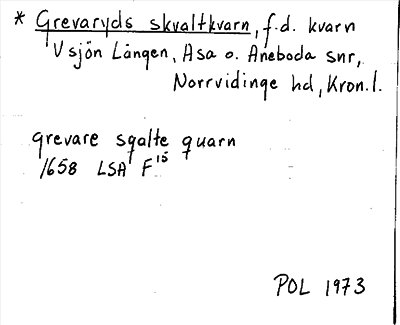 * Grevaryds skvaltkvarn, f.d. kvarn
V sjön Lången, Asa o. Aneboda snr,
Norrvidinge hd, Kron. l.
grevare sqalte quarn
1658 LSA F 15
POL 1973